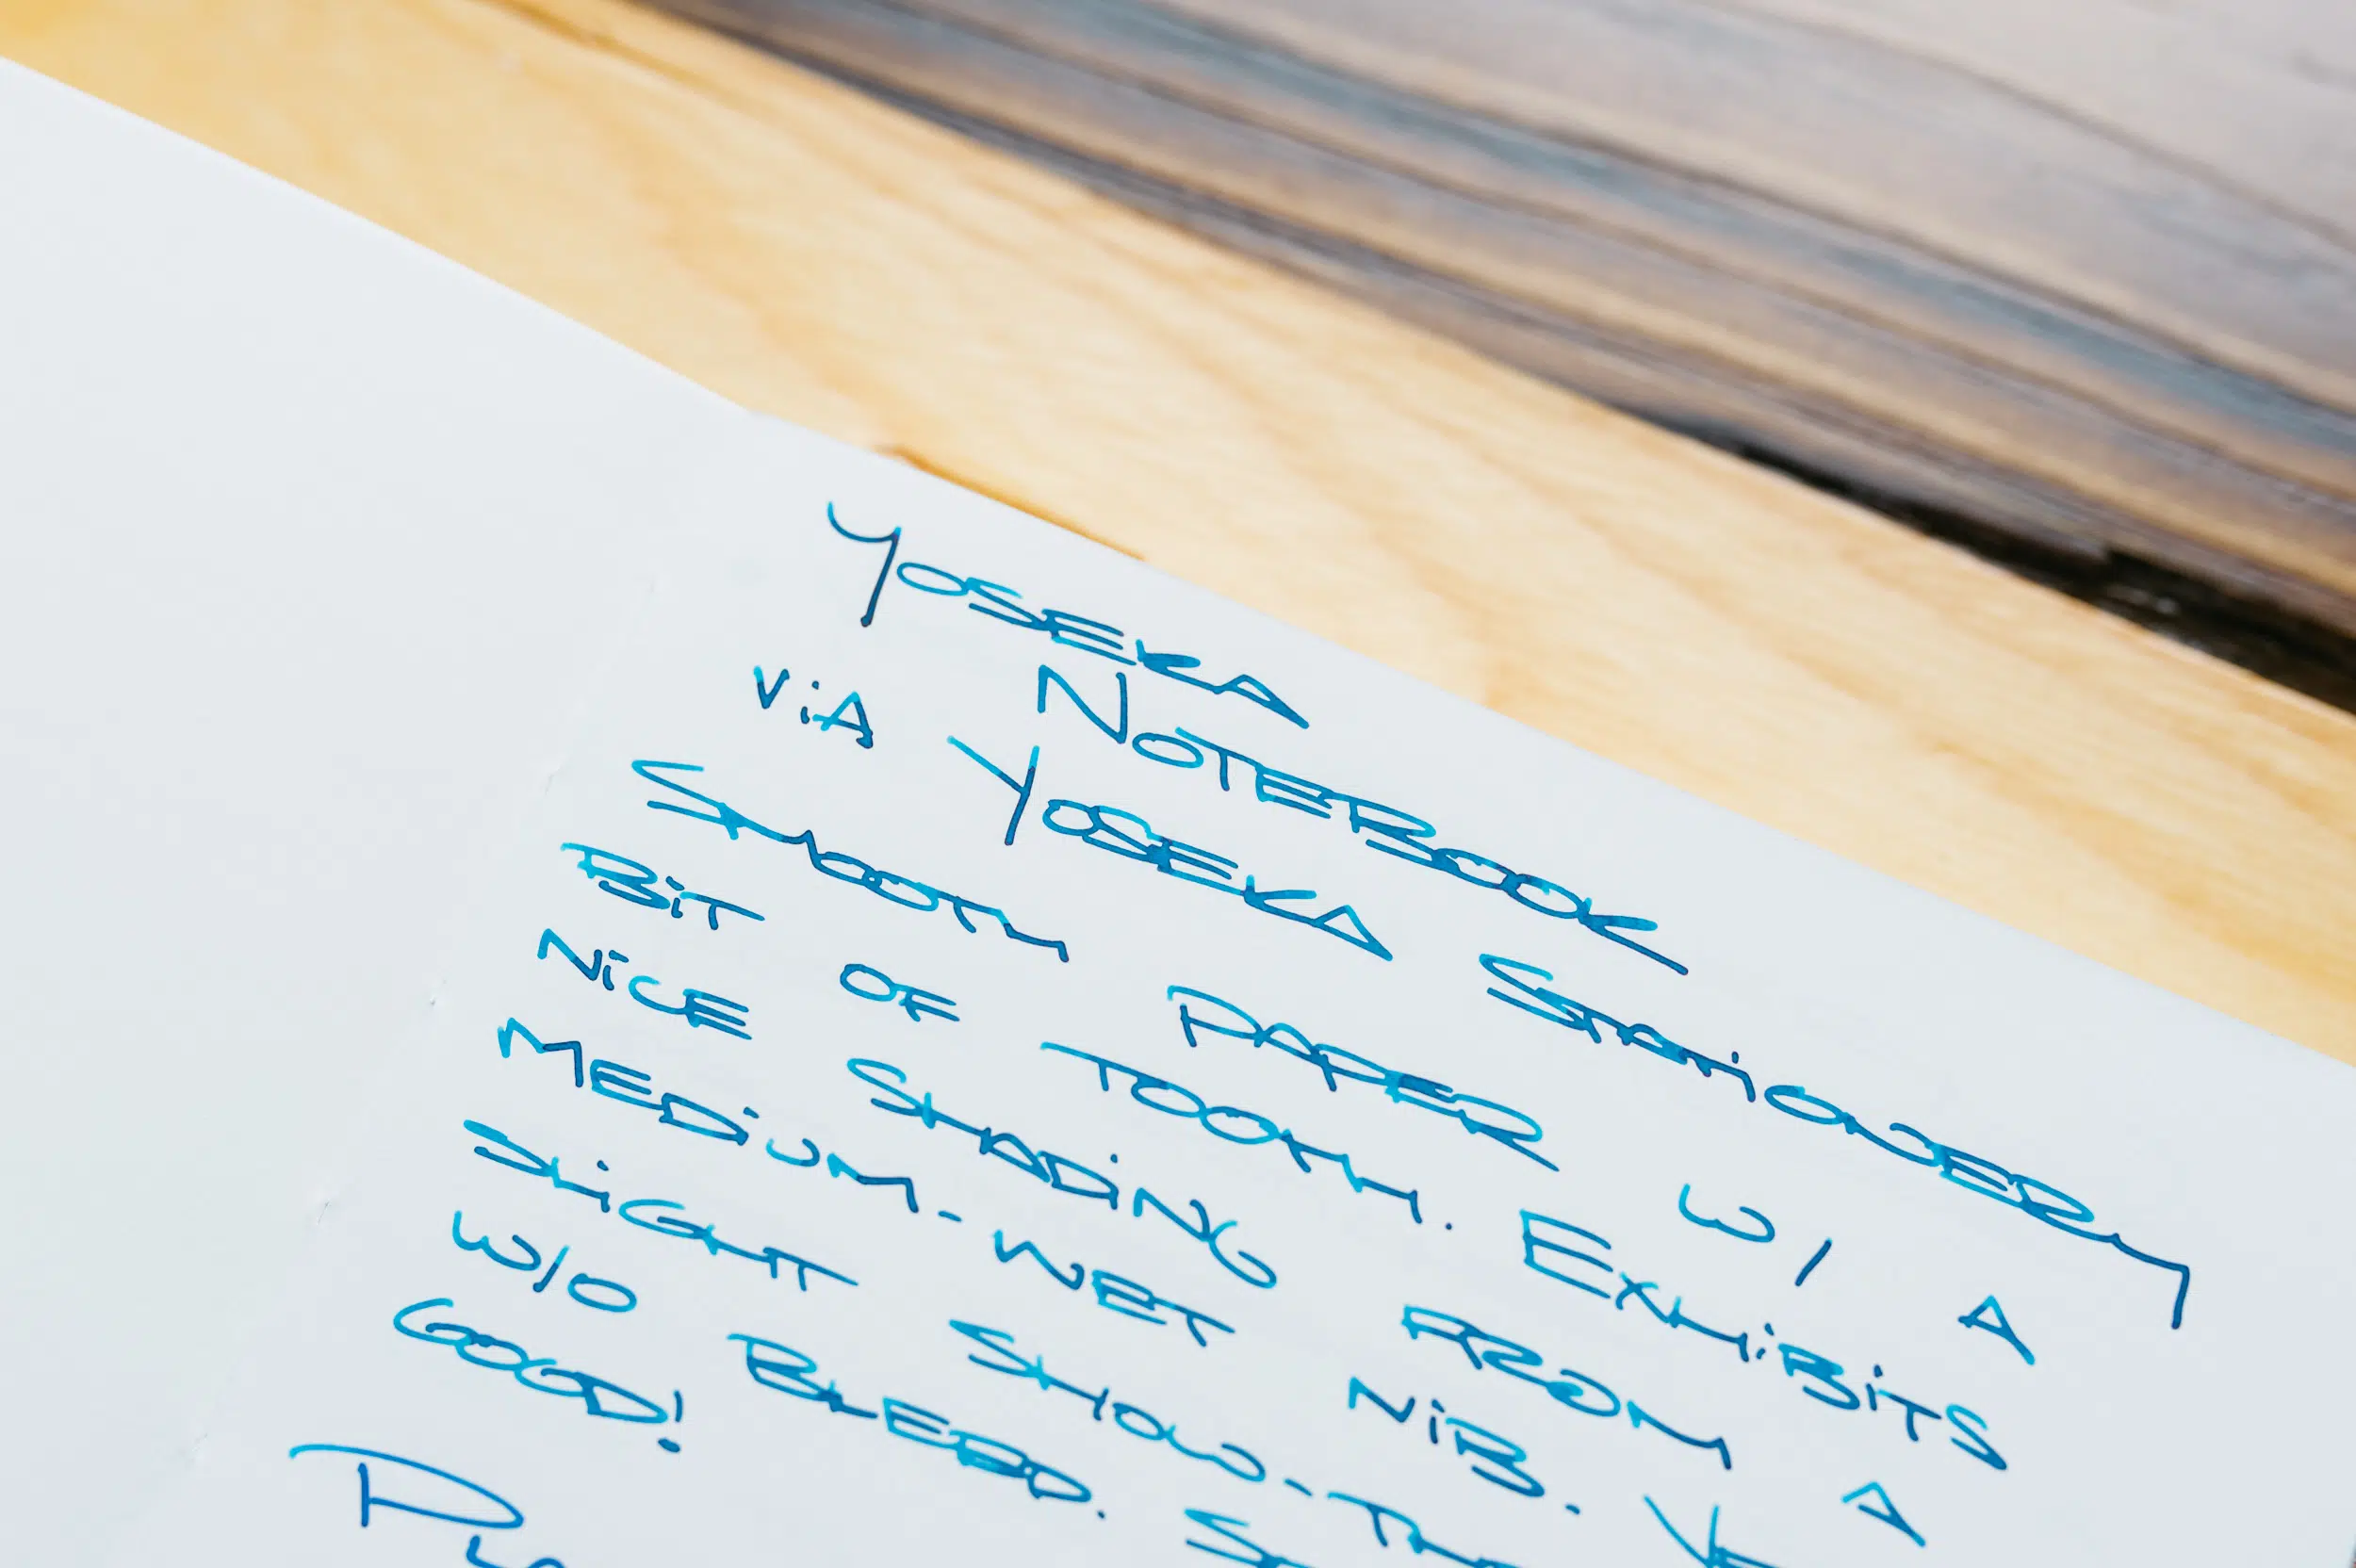 YOSEKA NOTEBOOK
ViA YOSEKA STATiONERY
SMOOTH PAPER W/ A
BiT OF TOOTH. EXHiBiTS
NiCE SHADiNG FROM A
MEDiUM-WET NiB.
SLiGHT SHOW-
W/O BLEED.
GOOD!